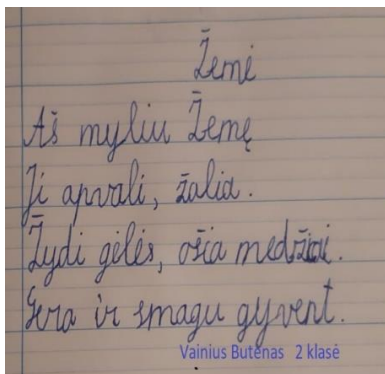 Žemė
Aš myliu Žemę
Ji apvali, žalia.
Žydi gėlės, ošia medžiai.
Gera ir smagu gyvent.
Vainius Butėnas 2 klasė